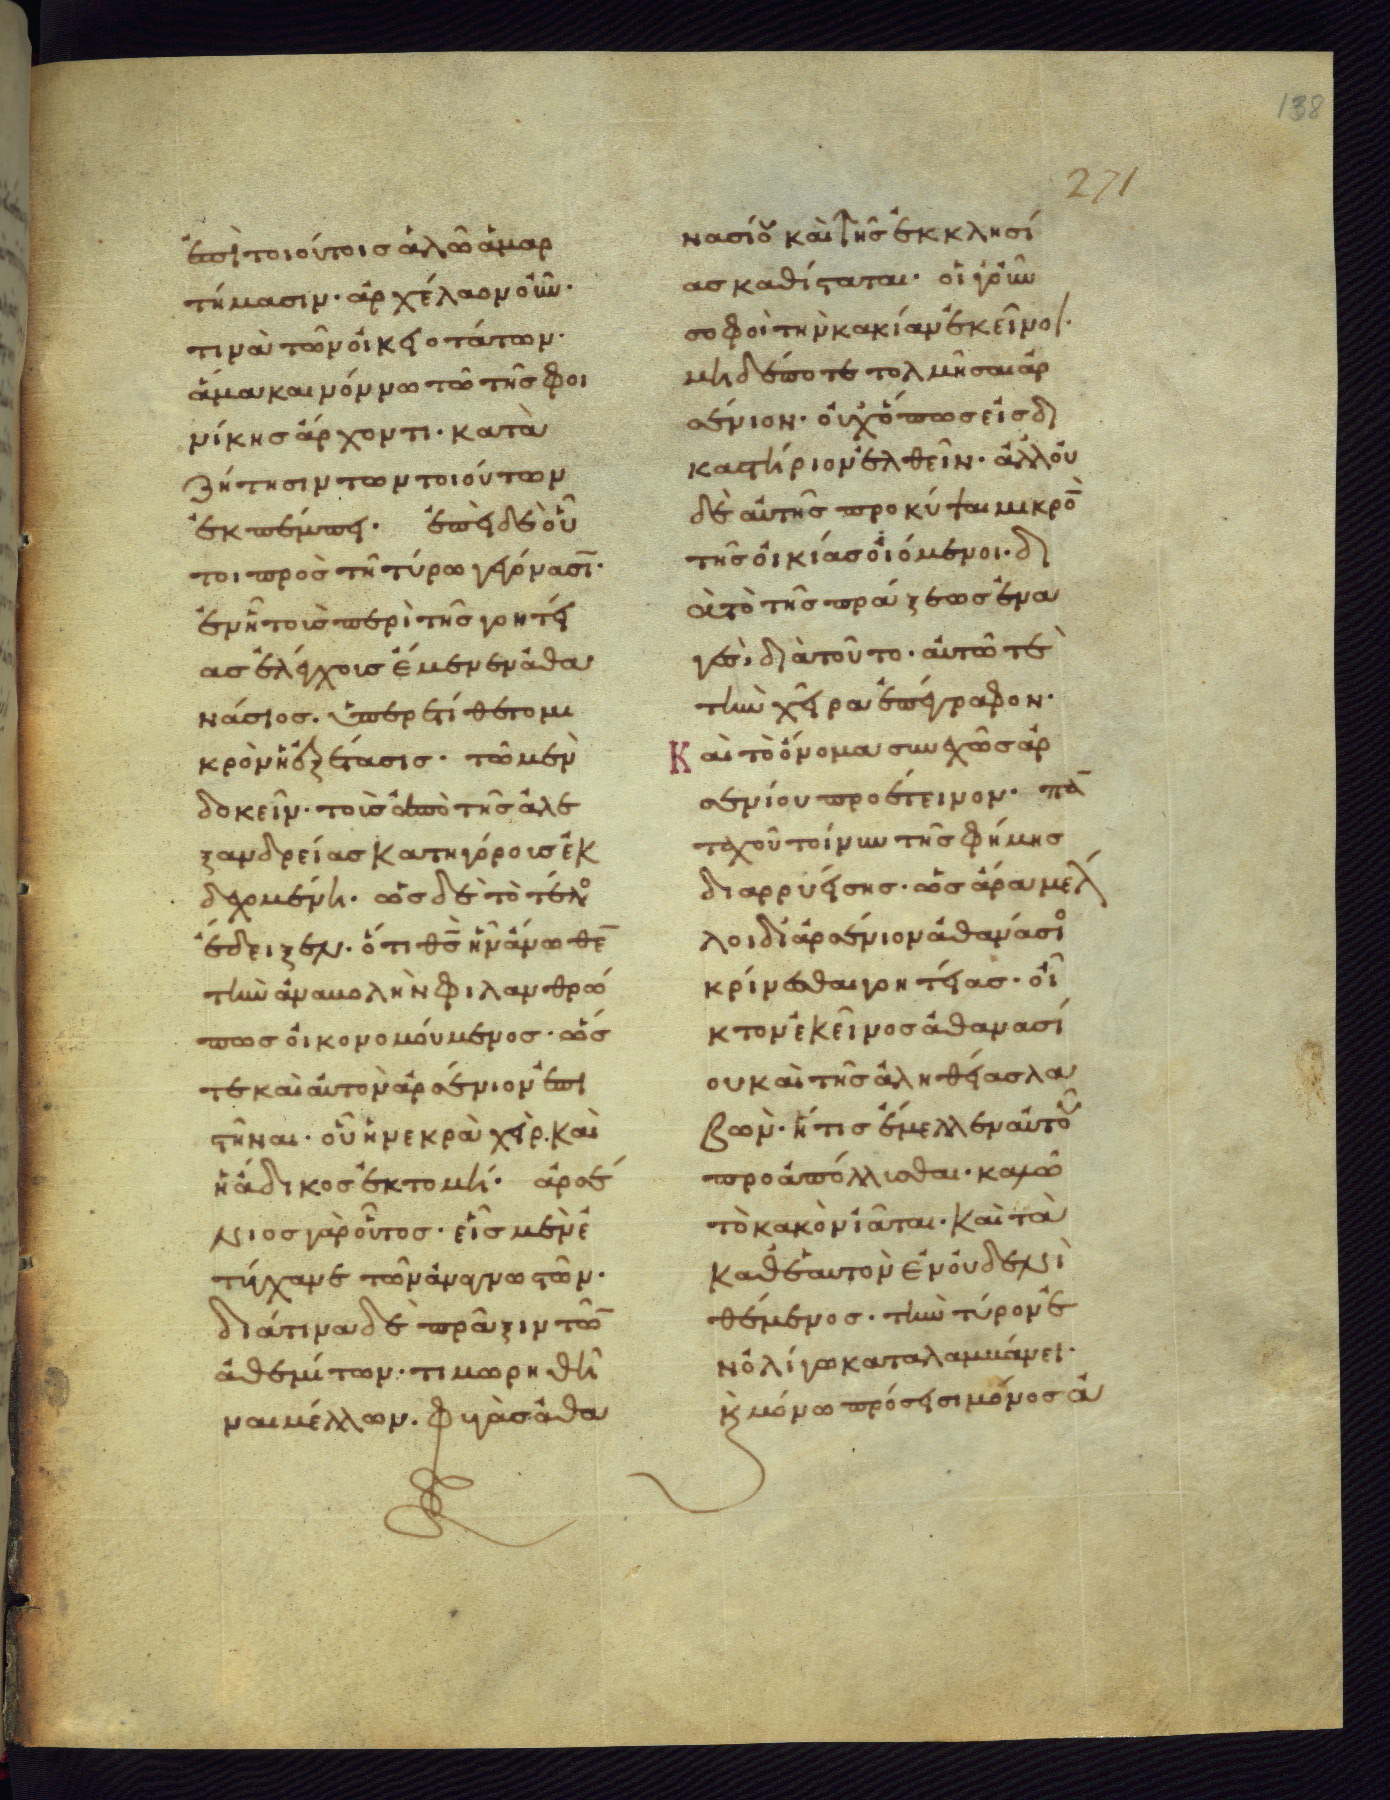 138
271
ἐπὶ τοιούτοις ἁλῶ ἁμαρ
τήμασιν· ἀρχέλαον οὖν·
τινὰ τῶν οἰκειοτάτων·
ἅμα καὶ νόννω τῶ τῆς φοι
νίκης ἄρχοντι· κατὰ
ζήτησιν τῶν τοιούτων
ἐκπέμπει· ἐπεὶ δὲ οὗ
τοι πρὸς τῆ τύρω γεγόνασῑ·
ἐν ἧ τοῖς περὶ τῆς γοητεί
ας ἐλέγχοις ἔμενεν ἀθα
νάσιος. ὑπερετίθετο μι
κρὸν ἡ ἐξέτασις· τῶ μὲν
δοκεῖν· τοῖς ἀπὸ τῆς ἀλε
ξανδρείας κατηγόροις ἐκ
δεχομένη· ὡς δὲ τὸ τέλο
ἔδειξεν· ὅτι θς̄ ἦν ἄνωθε̄
τὴν ἀναβολὴν φιλανθρώ
πως οἰκονομούμενος· ὥς
τε καὶ αὐτὸν ἀρσένιον ἐπι
στῆναι· οὗ ἡ νεκρὰ χείρ· καὶ
ἡ ἄδικος ἐκτομή· ἀρσέ
νιος γὰρ οὗτος· εἷς μὲν ἐ
τύγχανε τῶν ἀναγνωστῶν·
διά τινα δὲ πρᾶξιν τῶ̄
ἀθεμίτων· τιμωρηθῆ
ναι μέλλων. φυγὰς ἀθα
νασίου καὶ τῆς ἐκκλησί
ας καθίσταται· οἱ γοῦν
σοφοὶ τὴν κακίαν ἐκεῖνοι·
μηδέποτε τολμῆσαι ἀρ
σένιον· οὐχ ὅπως εἰς δι
καστήριον ἐλθεῖν· ἀλλ οὐ
δὲ αὐτῆς προκύψαι μικρὸ̄
τῆς οἰκίας οἰόμενοι· δι
ὰ τὸ τῆς πράξεως ἐνα
γές· διὰ τοῦτο· αὐτῶ τὲ
τὴν χεῖρα ἐπέγραφον·
Καὶ τὸ ὄνομα συνεχῶς ἀρ
σενίου προέτεινον· πᾱ
ταχοῦ τοίνυν τῆς φήμης
διαρρυείσης· ὡς ἄρα μέλ
λοι δι ἀρσένιον ἀθανάσιο
κρίνεσθαι γοητείας· οἶ
κτον ἐκεῖνος ἀθανασί
ου καὶ τῆς ἀληθείας λα
βὼν· ἥτις ἔμελλεν αὐτοῦ
προαπόλλυσθαι· κακῶ
τὸ κακὸν ἰᾶται· καὶ τὰ
καθ ἑαυτὸν ἐν οὐδενὶ
θέμενος· τὴν τύρον ἐ
ν ὀλίγω καταλαμβάνει·
κ μόνω πρόσεισι μόνος ἀ